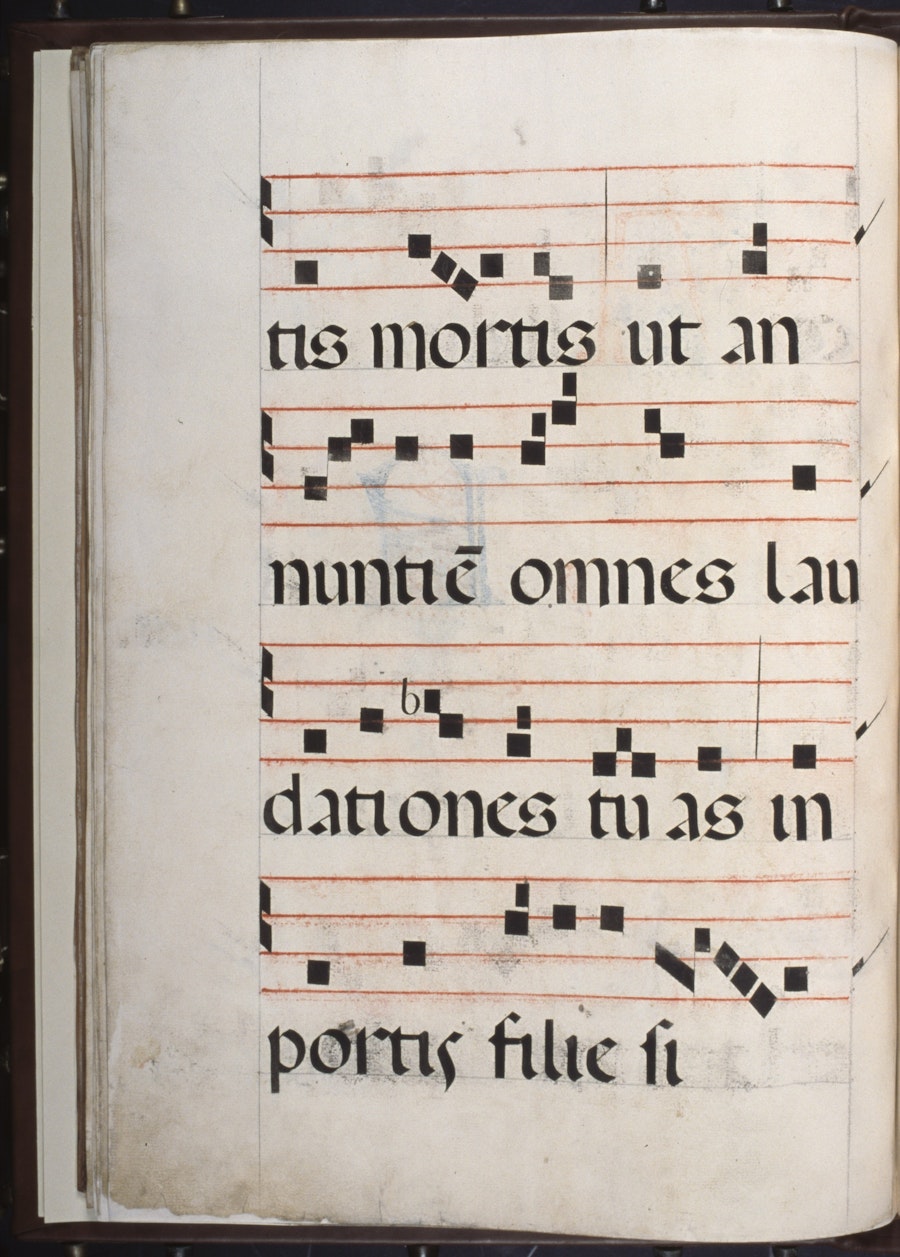 tis mortis ut an
nuntiē omnes lau
b
dationes tuas in
portis filie si